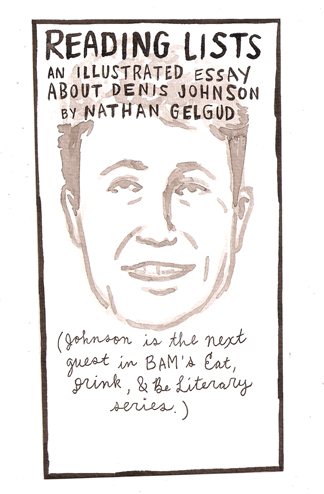 READING LISTS
AN ILLUSTRATED ESSAY
ABOUT DENIS JOHNSON
BY NATHAN GELGUD
(Johnson is the next
guest in BAM's Eat,
Drink, & Be Literary
series.)